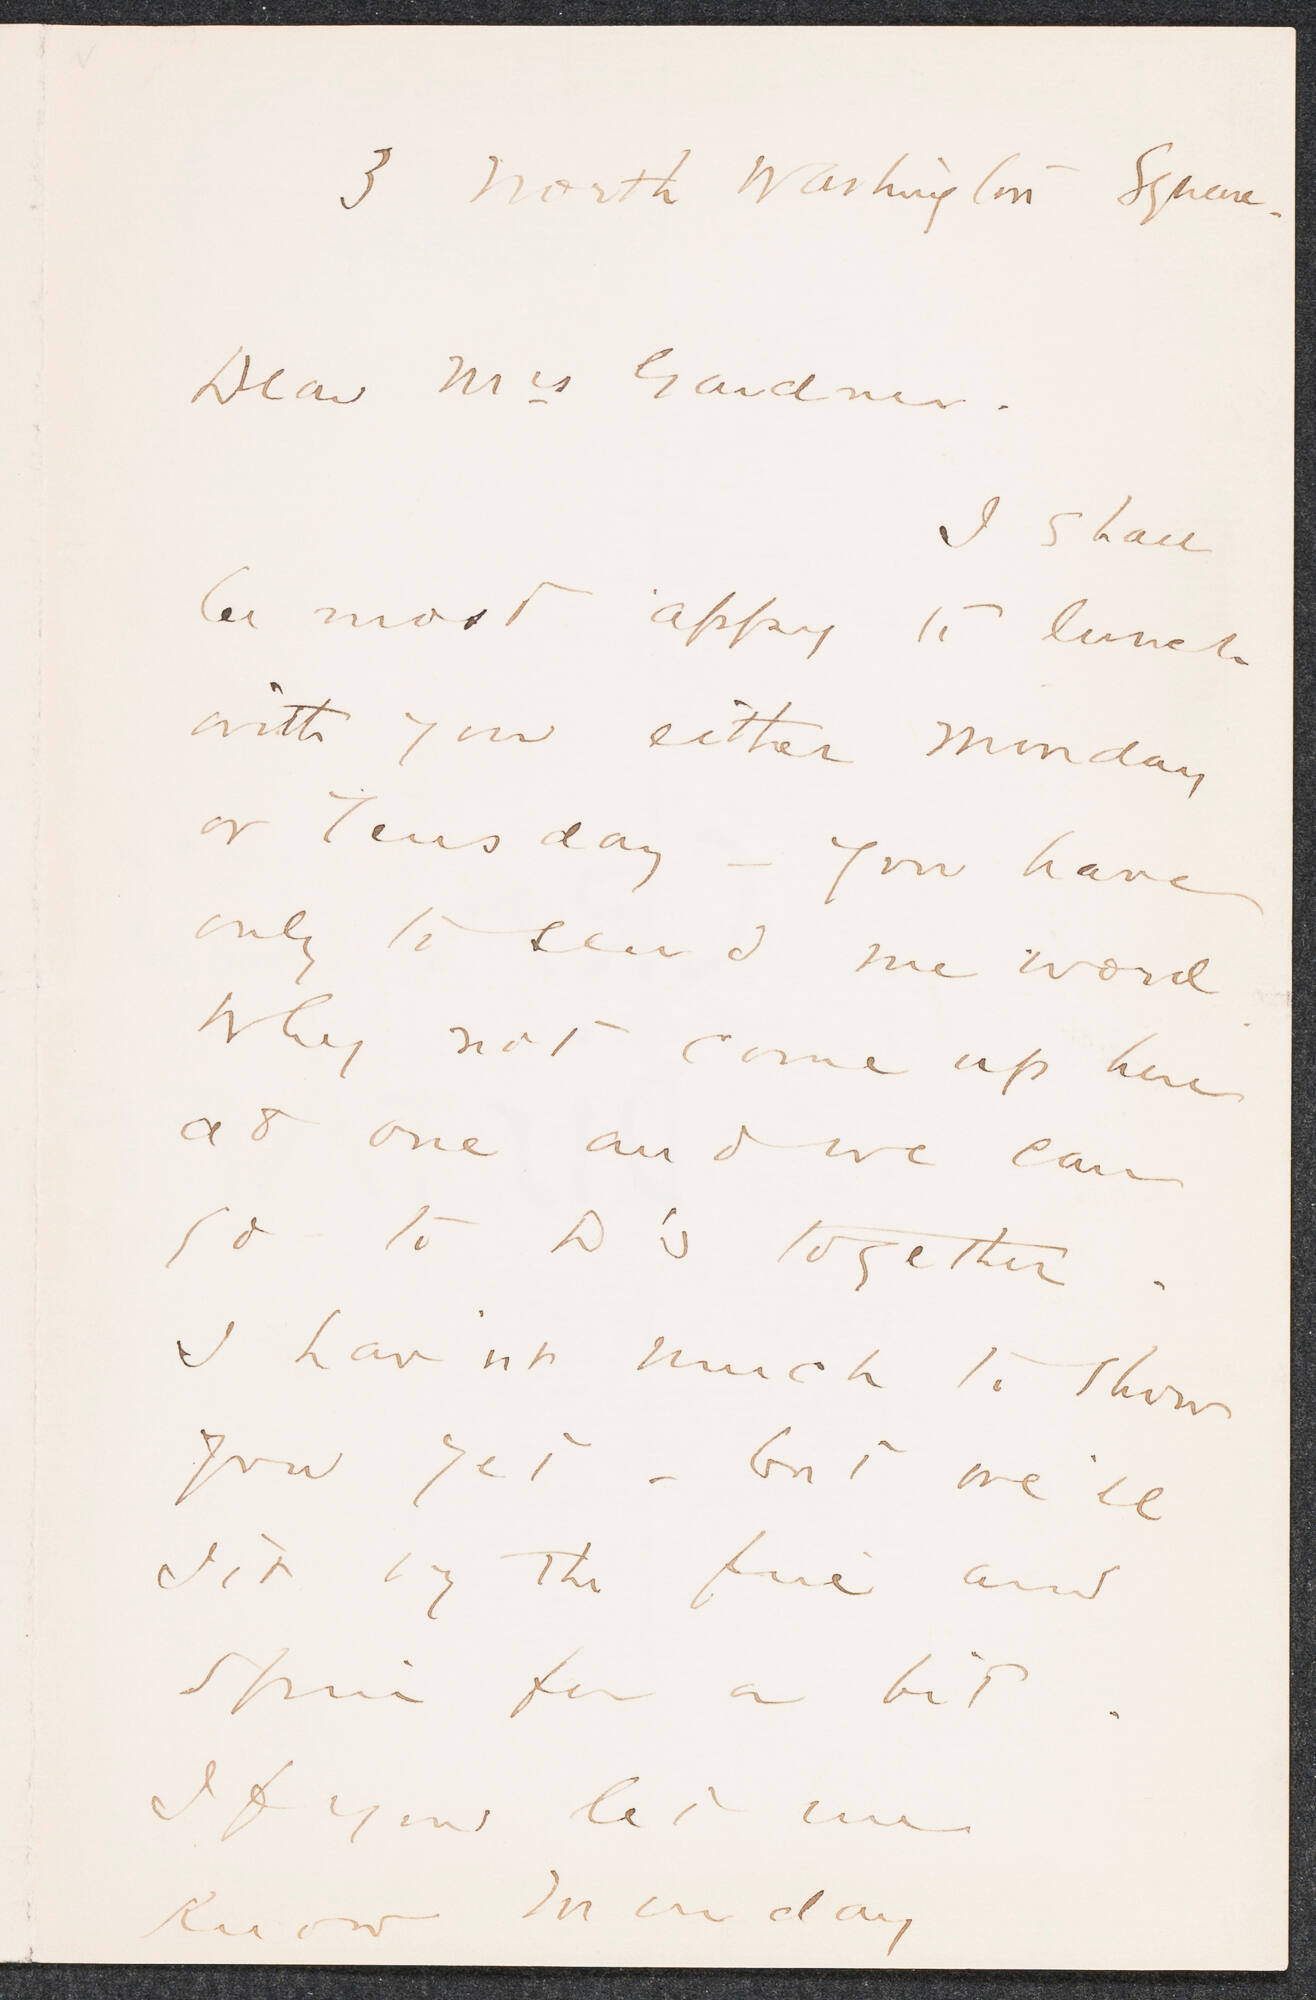 3 North Washington Square.
Dear Mrs Gardner.
I shall
be most 'appy to lunch
with you either Monday
or Teusday - You have
only to send me word
Why not come up here
at one and we can
go to D's together.
I hav'nt much to show
you yet - but we'll
sit by the fire and
spin for a bit.
If you let me
know Monday